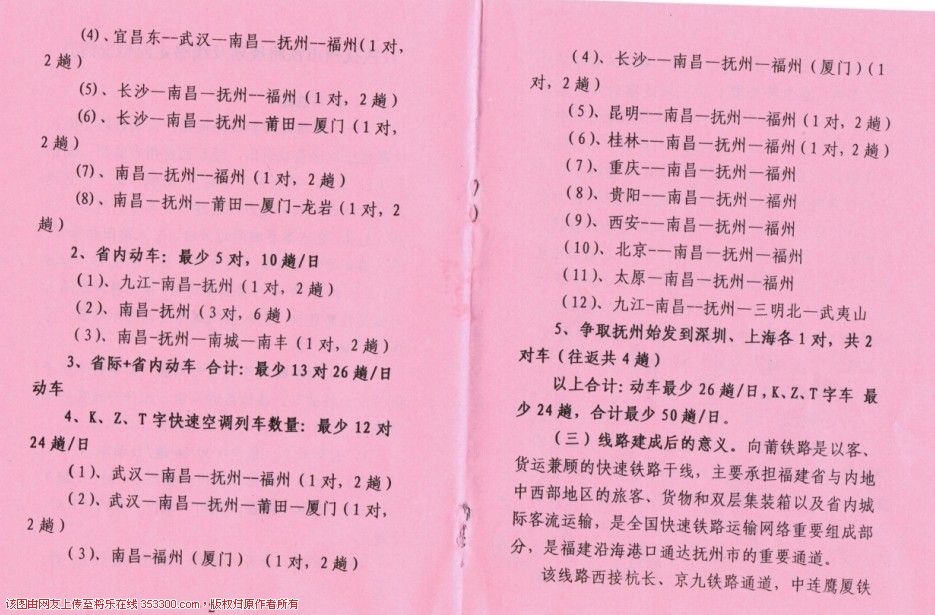 (4)、宜昌东--武汉—南昌—抚州--福州(1对,
2趟)
(5)、长沙—南昌—抚州--福州(1对,2趟)
(6)、长沙—南昌—抚州—莆田—厦门(1对,
2趟)
(7)、南昌—抚州--福州(1对,2趟)
(8)、南昌—抚州—莆田—厦门-龙岩(1对,2
趟)
2、省内动车:最少5对,10趟/日
(1)、九江-南昌-抚州(1对,2趟)
(2)、南昌-抚州(3对,6趟)
(3)、南昌-抚州—南城—南丰(1对,2趟)
3、省际+省内动车 合计:最少13对26趟/日
动车
4、K、Z、T字快速空调列车数量:最少12对
24趟/日
(1)、武汉—南昌—抚州--福州(1对,2趟)
(2)、武汉—南昌—抚州—莆田—厦门(1对,
2趟)
(3)、南昌-福州(厦门) (1对,2趟)
(4)、长沙---南昌—抚州—福州(厦门)(1
对,2趟)
(5)、昆明---南昌—抚州—福州(1对,2趟)
(6)、桂林---南昌—抚州—福州(1对,2趟)
(7)、重庆---南昌—抚州—福州
(8)、贵阳---南昌—抚州—福州
(9)、西安---南昌—抚州—福州
(10)、北京---南昌—抚州—福州
(11)、太原—南昌—抚州—福州
(12)、九江-南昌--抚州—三明北—武夷山
5、争取抚州始发到深圳、上海各1对,共2
对车(往返共4趟)
以上合计:动车最少26趟/日,K、Z、T字车 最
少24趟,合计最少50趟/日。
(三)线路建成后的意义。向莆铁路是以客、
货运兼顾的快速铁路干线,主要承担福建省与内地
中西部地区的旅客、货物和双层集装箱以及省内城
际客流运输,是全国快速铁路运输网络重要组成部
分,是福建沿海港口通达抚州市的重要通道。
该线路西接杭长、京九铁路通道,中连鹰厦铁
该图由网友上传至将乐在线 353300.com,版权归原作者所有